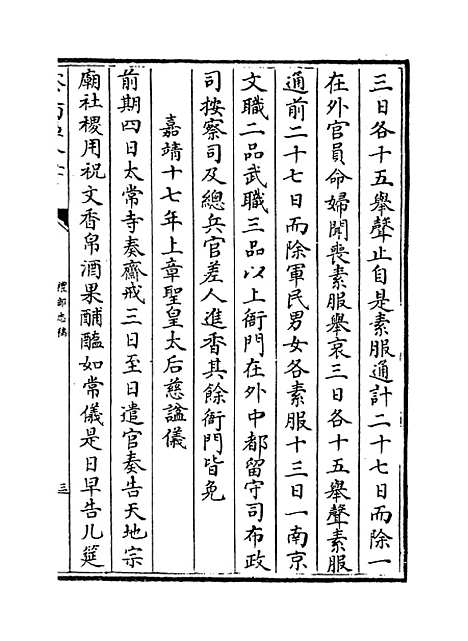 三日各十五舉聲止自是素服通計二十七日而除一
在外官員命婦聞喪素服舉哀三日各十五舉聲素服
通前二十七日而除軍民男女各素服十三日一南京
文職二品武職三品以上衙門在外中都留守司布政
司按察司及總兵官差人進香其餘衙門皆免
嘉靖十七年上章聖皇太后慈諡儀
前期四日太常寺奏齋戒三日至日遣官奏告天地宗
廟社稷用祝文香帛酒果酺醢如常儀是日早告几筵
禮部志稿
三